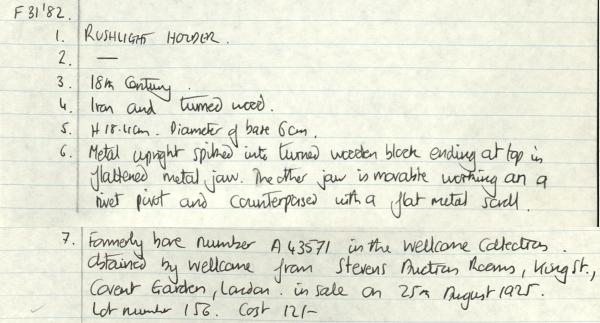 F 31'82.
1. RUSHLIGHT HOLDER.
2. —
3. 18th Century.
4. Iron and turned wood.
5. H 18.4cm. Diameter of base 6cm.
6. Metal upright spiked into turned wooden block ending at top in
flattened metal jaw. The other jaw is movable working on a
rivet pivot and counterpoised with a flat metal scroll.
7. Formerly bore number A 43571 in the Wellcome Collection.
Obtained by Wellcome from Stevens Auction Rooms, King St.,
Covent Garden, London. in sale on 25th August 1925.
Lot number 156. Cost 12/-